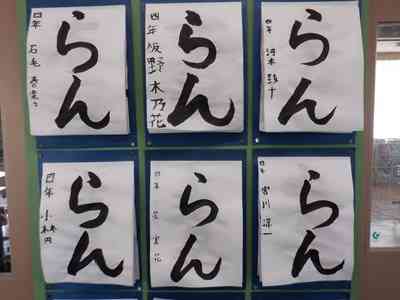 らん
四年 石毛
らん
四年 坂野 木乃花
らん
四年
らん
四年 小林
らん
四年
らん
四年 宮川